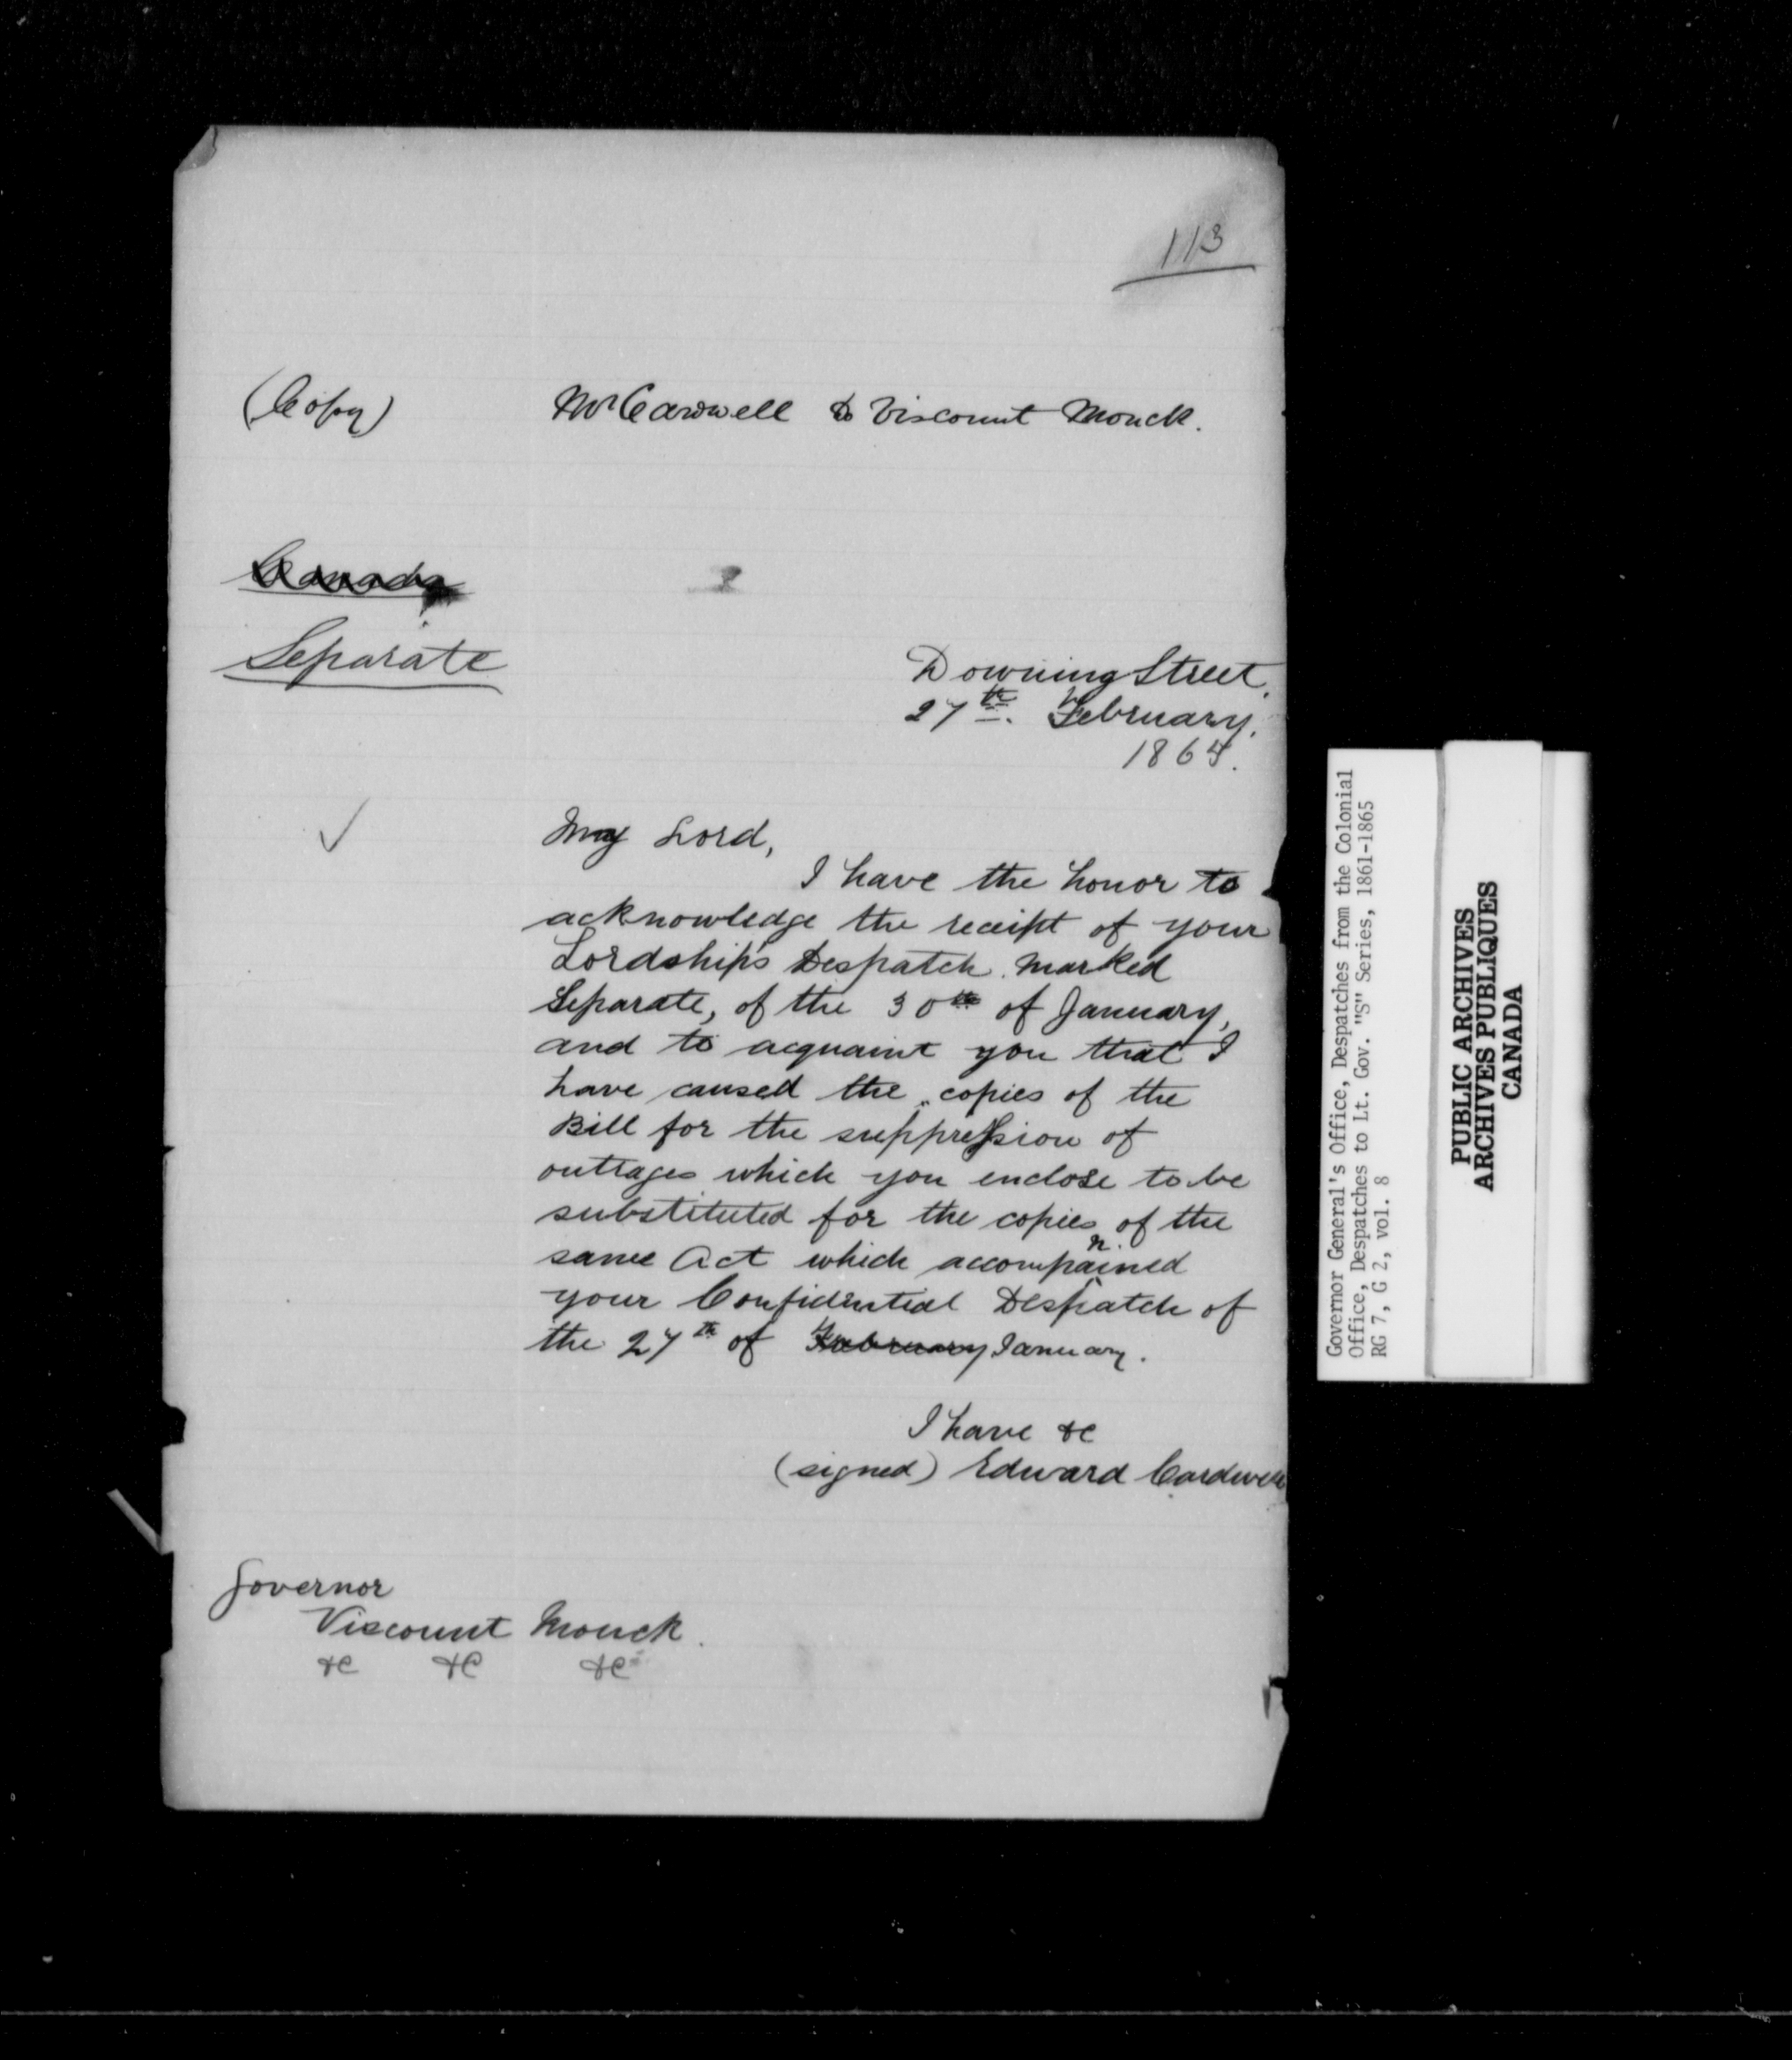 113
(Copy) Mr Cardwell to Viscount Monck.
Canada
Separate
Downing Street,
27th. February,
1865.
My Lord,
I have the honor to
acknowledge the receipt of your
Lordship's Despatch marked
Separate, of the 30th of January,
and to acquaint you that I
have caused the copies of the
Bill for the suppression of
outrages which you enclose to be
substituted for the copies of the
same Act which accompanied
your Confidential Despatch of
the 27th of February January.
I have &c
(signed) Edward Cardwell
Governor
Viscount Monck.
&c &c &c
Governor General's Office, Despatches from the Colonial
Office, Despatches to Lt. Gov. "S" Series, 1861-1865
RG 7, G 2, vol. 8
PUBLIC ARCHIVES
ARCHIVES PUBLIQUES
CANADA